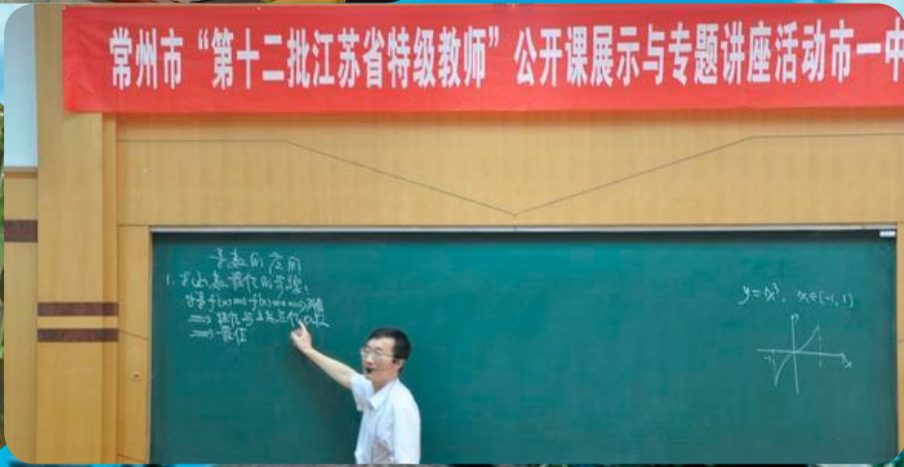 常州市“第十二批江苏省特级教师”公开课展示与专题讲座活动市一中
导数的应用
1. 求函数最值的步骤:
⇒ 极值与
⇒ 最值
y=x³, x∈[-1,1]
-1 1 x